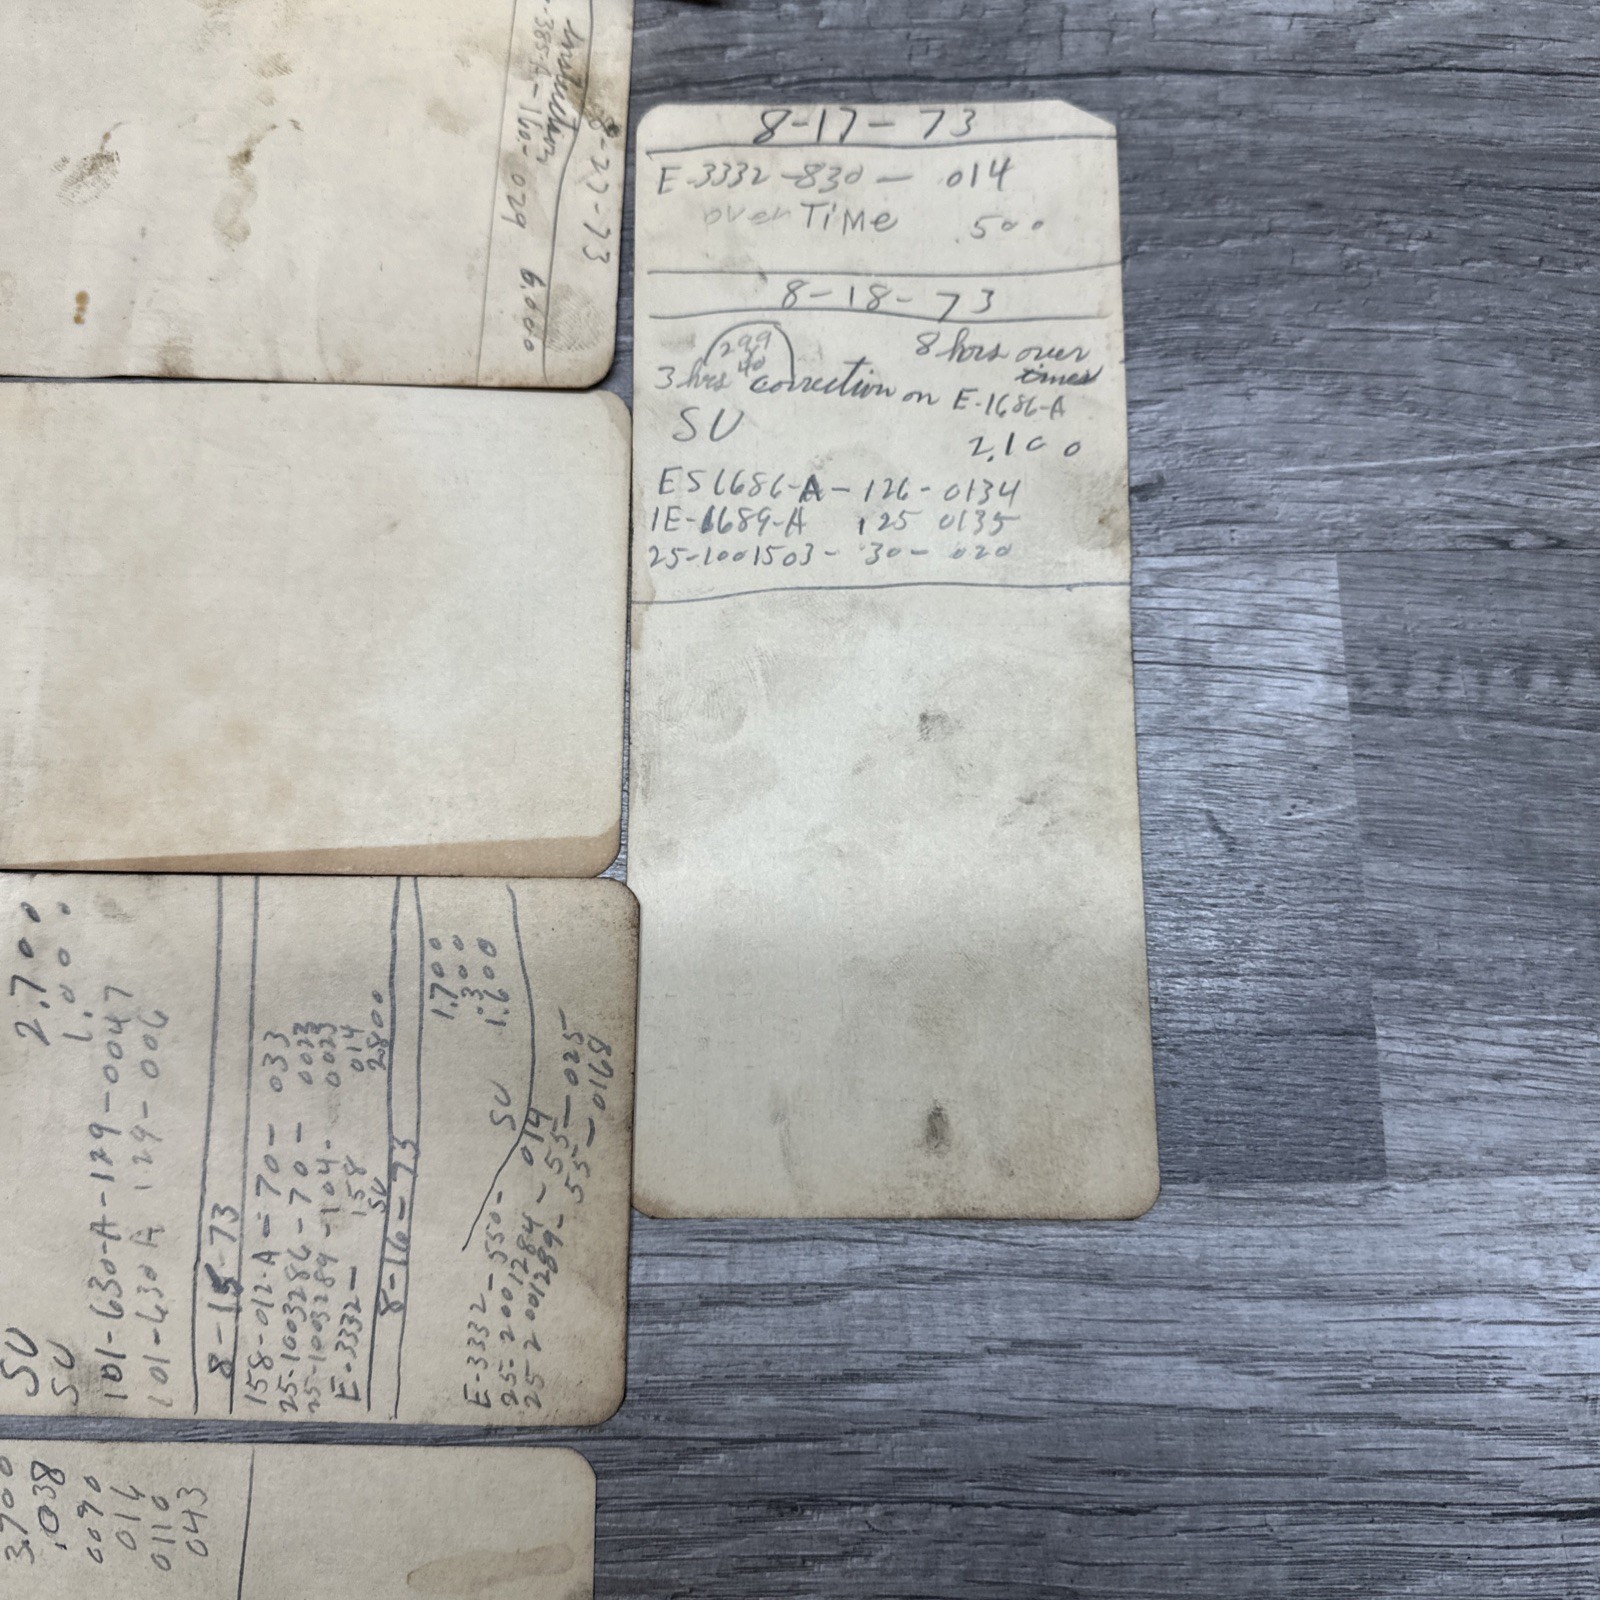 8-17-73
E-3332-830-014
over TiMe .500
8-18-73
299
40
8 hors over
times
3 hrs correction on E-1686-A
SU 2,100
ES1686-A-126-0134
1E-1689-A 125 0135
25-1001503-30-020
8-27-73
-385-A-160-029 6.000
SU 2.700
SU 1.000
101-630-A-129-0047
101-630A 129-006
8-15-73
158-012-A-70-033
25-1003286-70-0023
25-1003289-104-0023
E-3332-158 014
SU 2.800
8-16-73
1.700
.300
SU 1.600
E-3332-550-014
25-2001284-55-025
25-2001289-55-0168
3.700
.038
0090
014
0110
043